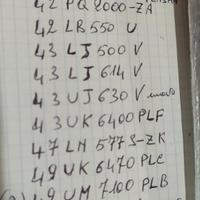 42 PQ 2000-ZA
42 LB 550 U
43 LJ 500 V
43 LJ 614 V
43 UJ 630 V
43 UK 6400 PLF
47 LN 577 S-ZK
49 UK 6470 PLC
49 UM 7100 PLB